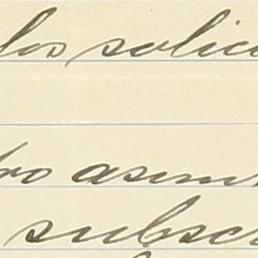 los solic
ro asim
subsc